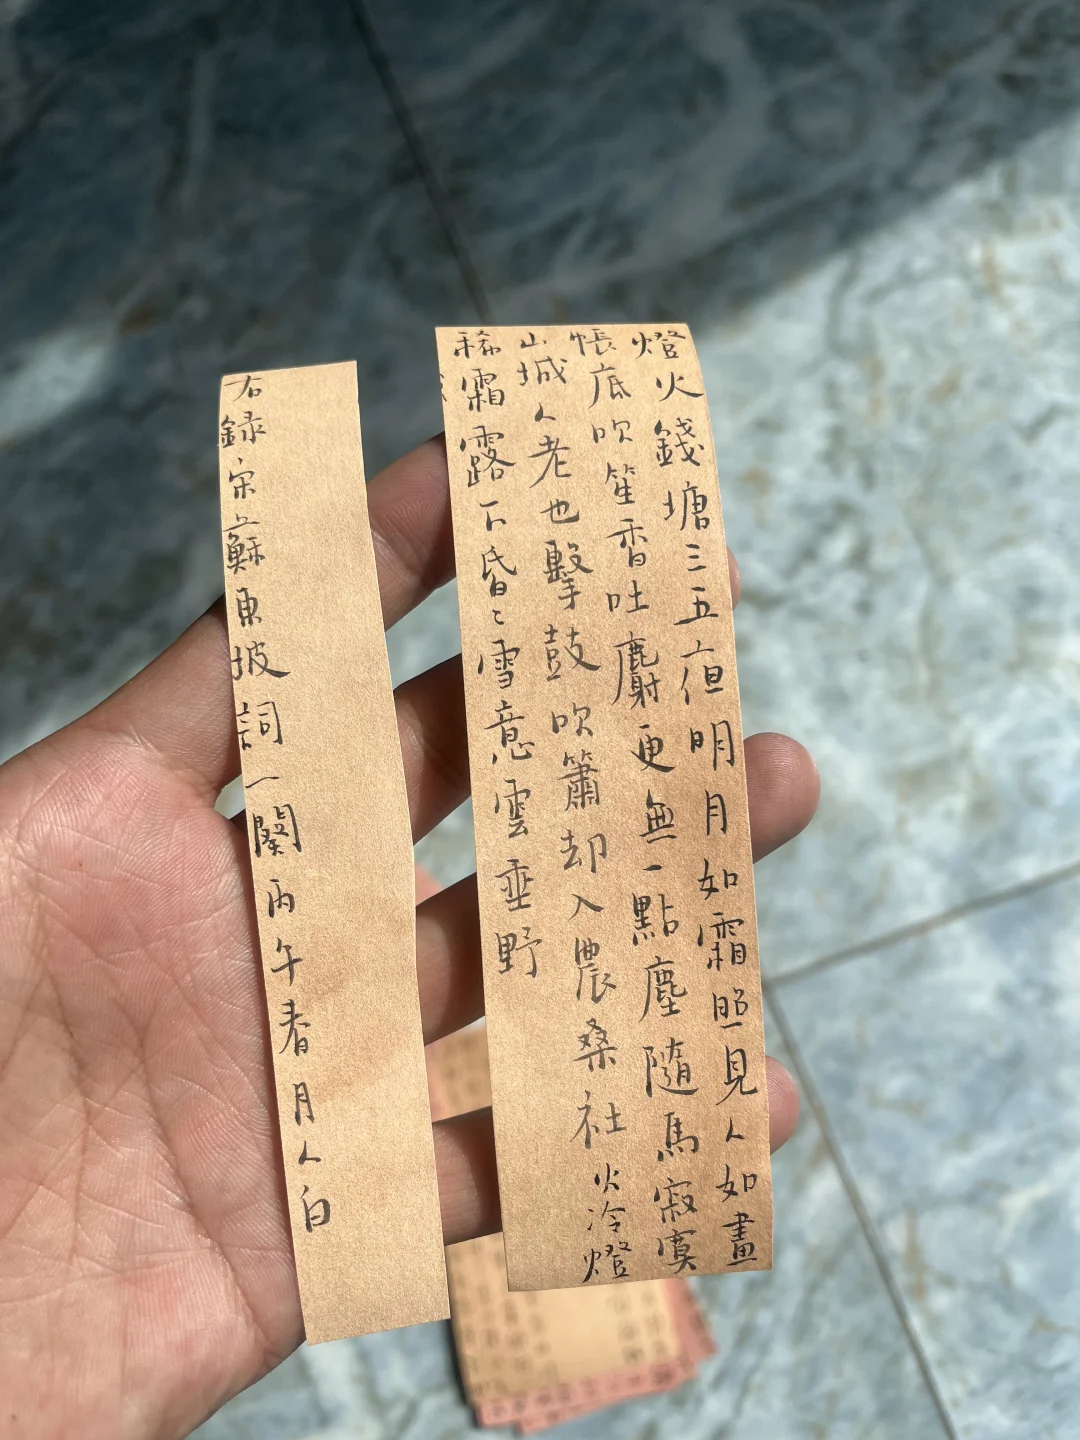 燈火錢塘三五夜明月如霜照見人如畫
帳底吹笙香吐麝更無一點塵隨馬寂寞
山城人老也擊鼓吹簫却入農桑社火冷燈
稀霜露下昏〻雪意雲垂野
右録宋蘇東坡詞一闋丙午春月人白